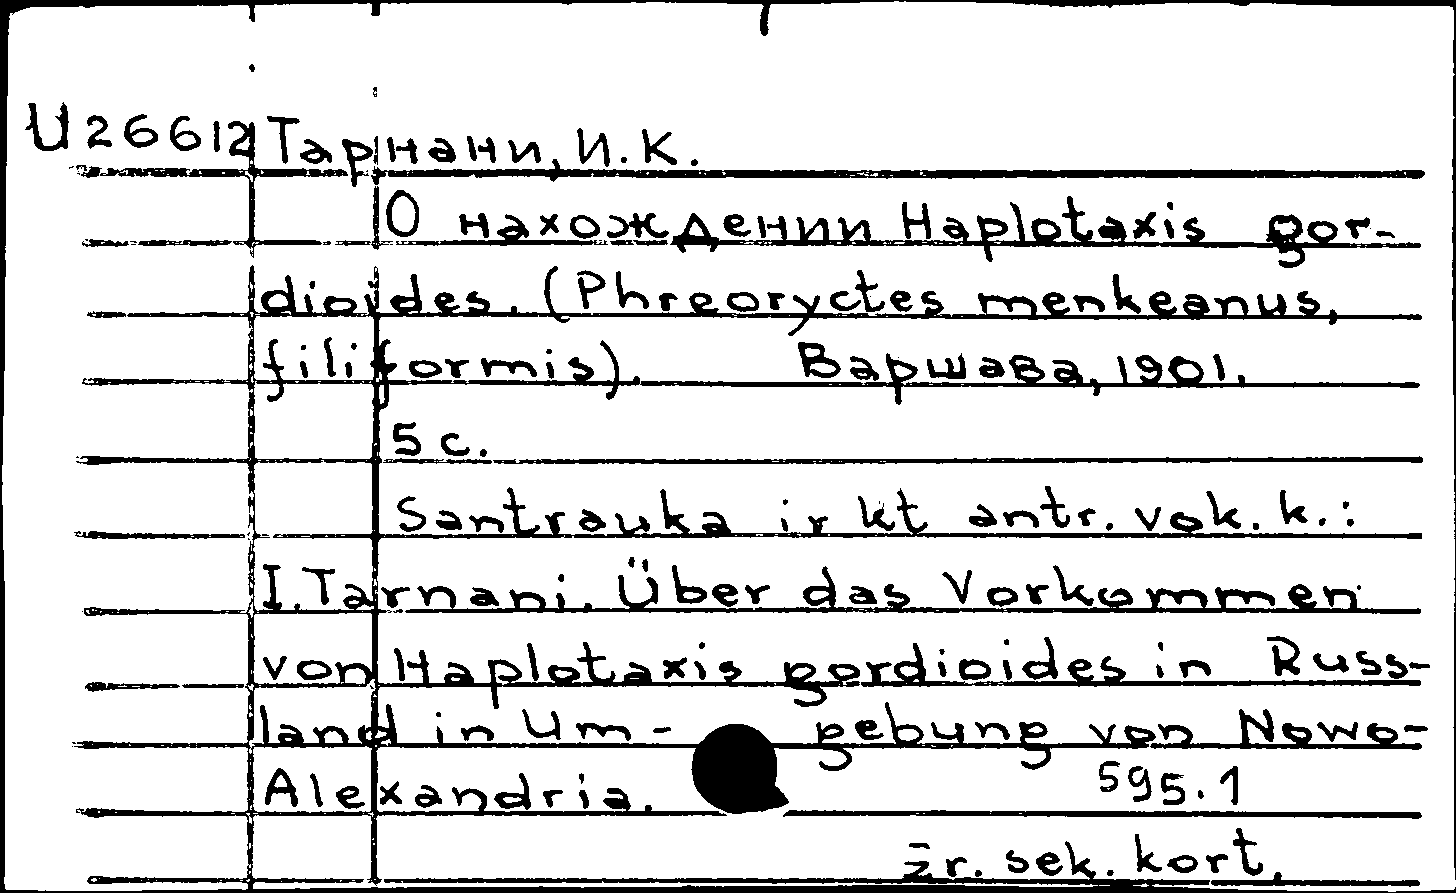 U26612 Тарнани, И.К.
О нахождении Haplotaxis gor-
dioides. (Phreoryctes menkeanus,
filiformis). Варшава, 1901.
5 с.
Santrauka ir kt antr. vok. k.:
I. Tarnani. Über das Vorkommen
von Haplotaxis gordioides in Russ-
land in Um- gebung von Nowo-
Alexandria. 595.1
žr. sek. kort.